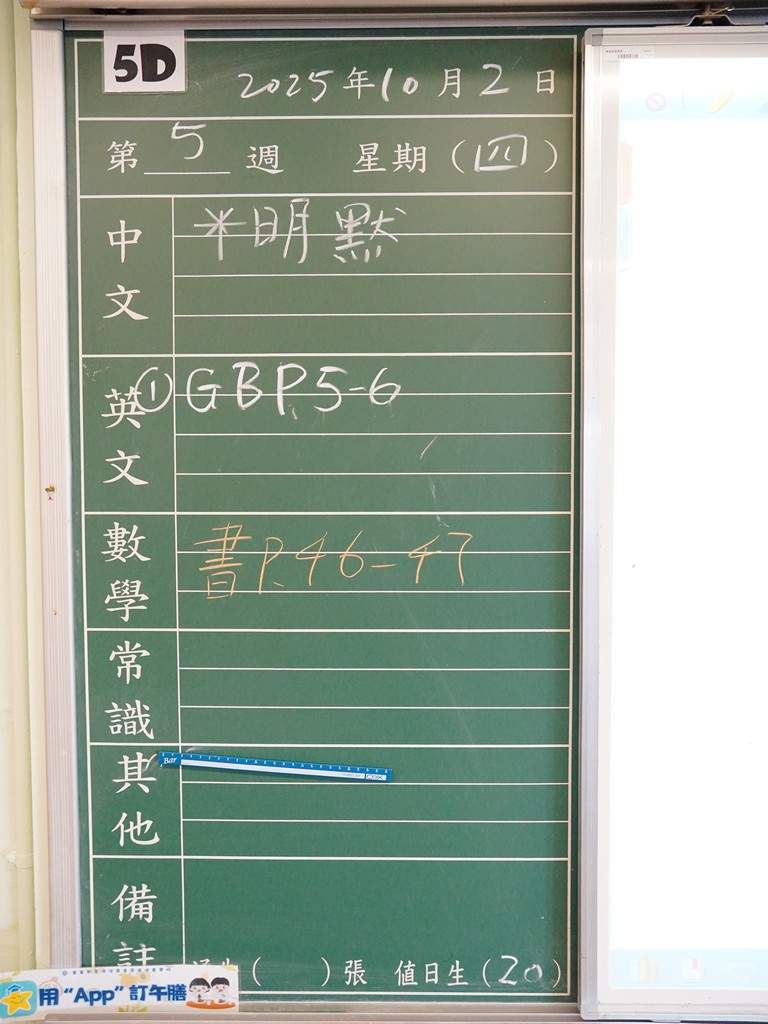 5D
2025年10月2日
第5週 星期(四)
中文
*明默
英文
①GBP.5-6
數學
書P.46-47
常識
其他
Bar
備註
( )張 值日生(20)
用“App”訂午膳